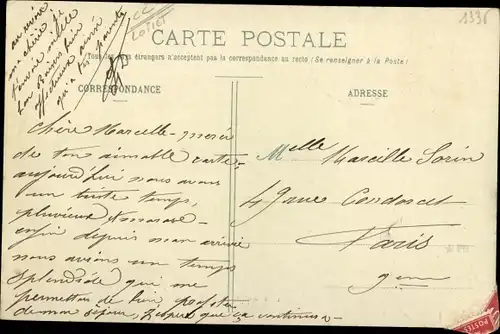 1336
CC
LOIRET
CARTE POSTALE
Tous les pays étrangers n'acceptent pas la correspondance au recto (Se renseigner à la Poste)
CORRESPONDANCE
ADRESSE
au revoir
ma chérie je
t'envoie mille
bons baisers bien
affectueux ainsi
qu'à tes parents
Chère Marcelle - merci
de ton aimable carte,
aujourd'hui nous avons
un triste temps,
pluvieux
enfin depuis mon arrivée
nous avions un temps
splendide qui me
permettait de bien profiter
de mon séjour, j'espère que ça continuera -
Melle Marcelle Sorin
49 rue Condorcet
Paris
9eme
POSTES